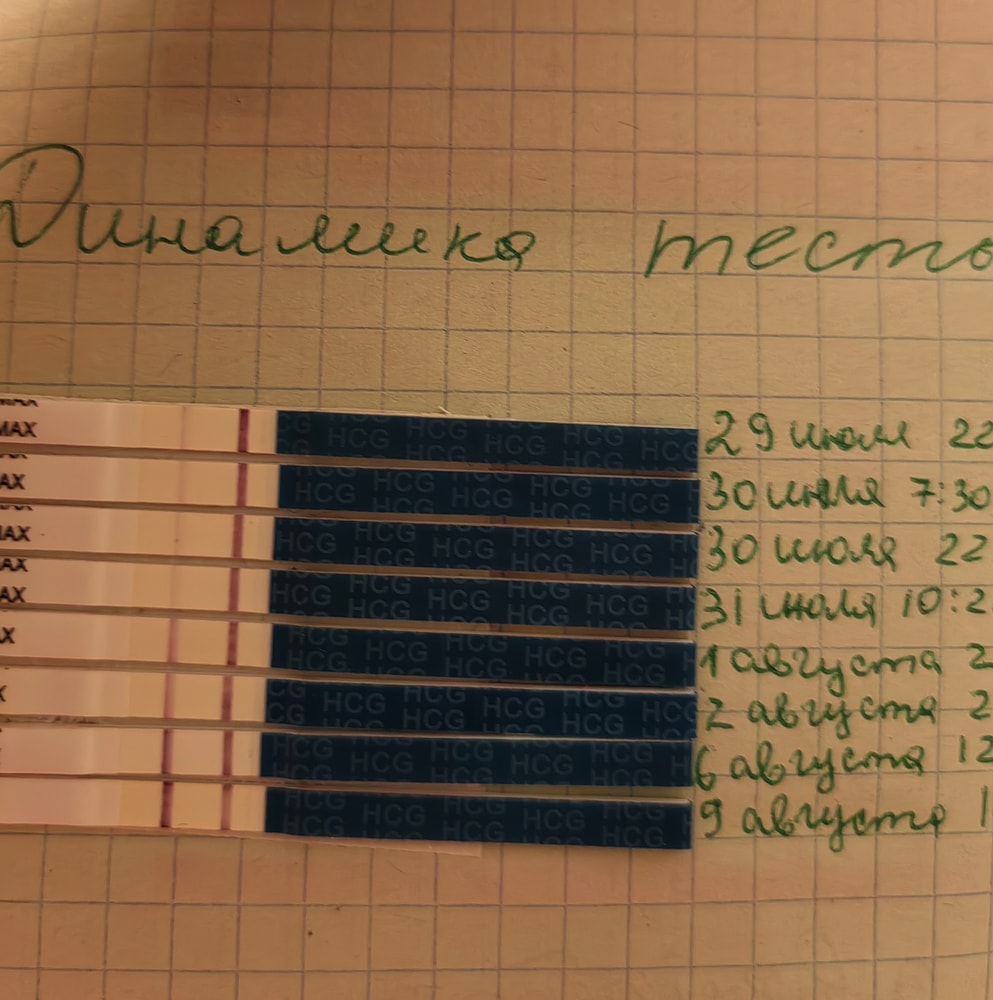 Динамика тесто
MAX
MAX HCG HCG HCG HCG HCG 29 июля 22
AX HCG HCG HCG HCG HCG 30 июля 7:30
MAX HCG HCG HCG HCG HCG 30 июля 22
AX
AX HCG HCG HCG HCG HCG 31 июля 10:2
X HCG HCG HCG HCG HCG 1 августа 2
X HCG HCG HCG HCG HCG 2 августа 2
HCG HCG HCG HCG HCG 6 августа 12
HCG HCG HCG HCG HCG 9 августа 1